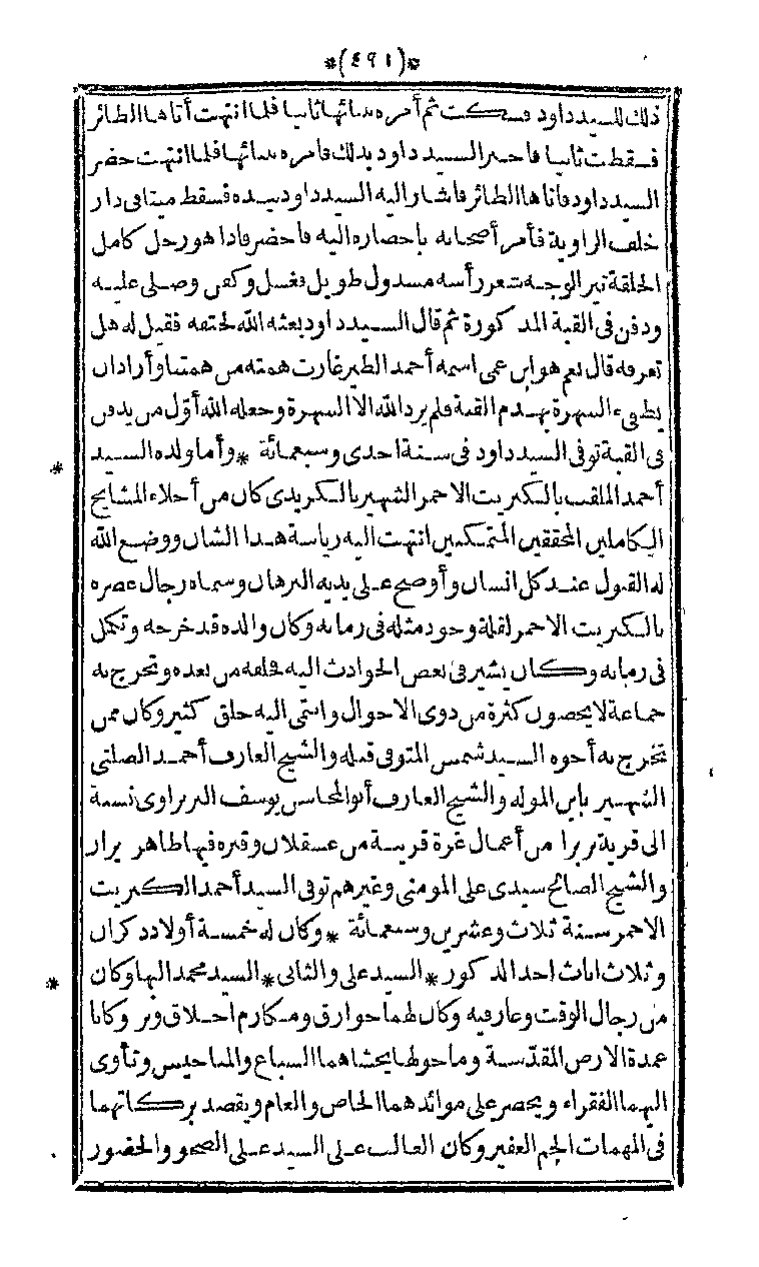 *(٤٩١)*
ذلك للسيد داود فسكت ثم أمره ببنائها ثانيا فلما انتهت أتاها الطائر
فسقطت ثانيا فاخبر السيد داود بذلك فامره ببنائها فلما انتهت حضر
السيد داود فاتاها الطائر فاشار اليه السيد داود بيده فسقط ميتا فى دار
خلف الزاوية فأمر أصحابه باحضاره اليه فاحضر فاذا هو رجل كامل
الخلقة نير الوجه شعر رأسه مسدول طويل فغسل وكفن وصلى عليه
ودفن فى القبة المذكورة ثم قال السيد داود بعثه الله لحتفه فقيل له هل
تعرفه قال نعم هو ابن عمى اسمه أحمد الطير غارت همته من همتنا وأراد ان
يطفىء الشهرة بهدم القبة فلم يرد الله الا الشهرة وجعله الله أوّل من يدفن
فى القبة توفى السيد داود فى سنة احدى وسبعمائة * وأما ولده السيد
أحمد الملقب بالكبريت الاحمر الشهير بالكريدى كان من أجلاء المشايخ
الكاملين المحققين المتمكنين انتهت اليه رياسة هذا الشان ووضع الله
له القبول عند كل انسان وأوضح على يديه البرهان وسماه رجال عصره
بالكبريت الاحمر لقلة وجود مثله فى زمانه وكان والده قد خرجه وتكمل
فى زمانه وكان يشير فى بعض الحوادث اليه فخلفه من بعده وتخرج به
جماعة لا يحصون كثرة من ذوى الاحوال وانتمى اليه خلق كثير وكان ممن
تخرج به أخوه السيد شمس المتوفى قبله والشيخ العارف أحمد الصلتى
الشهير بابن الموله والشيخ العارف أبو المحاسن يوسف البربراوى نسبة
الى قرية بربرا من أعمال غزة قريبة من عسقلان وقبره فيها ظاهر يزار
والشيخ الصالح سيدى على المومنى وغيرهم توفى السيد أحمد الكبريت
الاحمر سنة ثلاث وعشرين وسبعمائة * وكان له خمسة أولاد ذكران
وثلاث اناث احد الذكور * السيد على والثانى * السيد محمد البها وكان
من رجال الوقت وعارفيه وكان لهما خوارق ومكارم اخلاق وبر وكانا
عمدة الارض المقدّسة وما حولها يخشاهما السباع والمناحيس وتأوى
اليهما الفقراء ويحضر على موائدهما الخاص والعام ويقصد بركاتهما
فى المهمات الجم الغفير وكان الغالب على السيد على الصحو والحضور